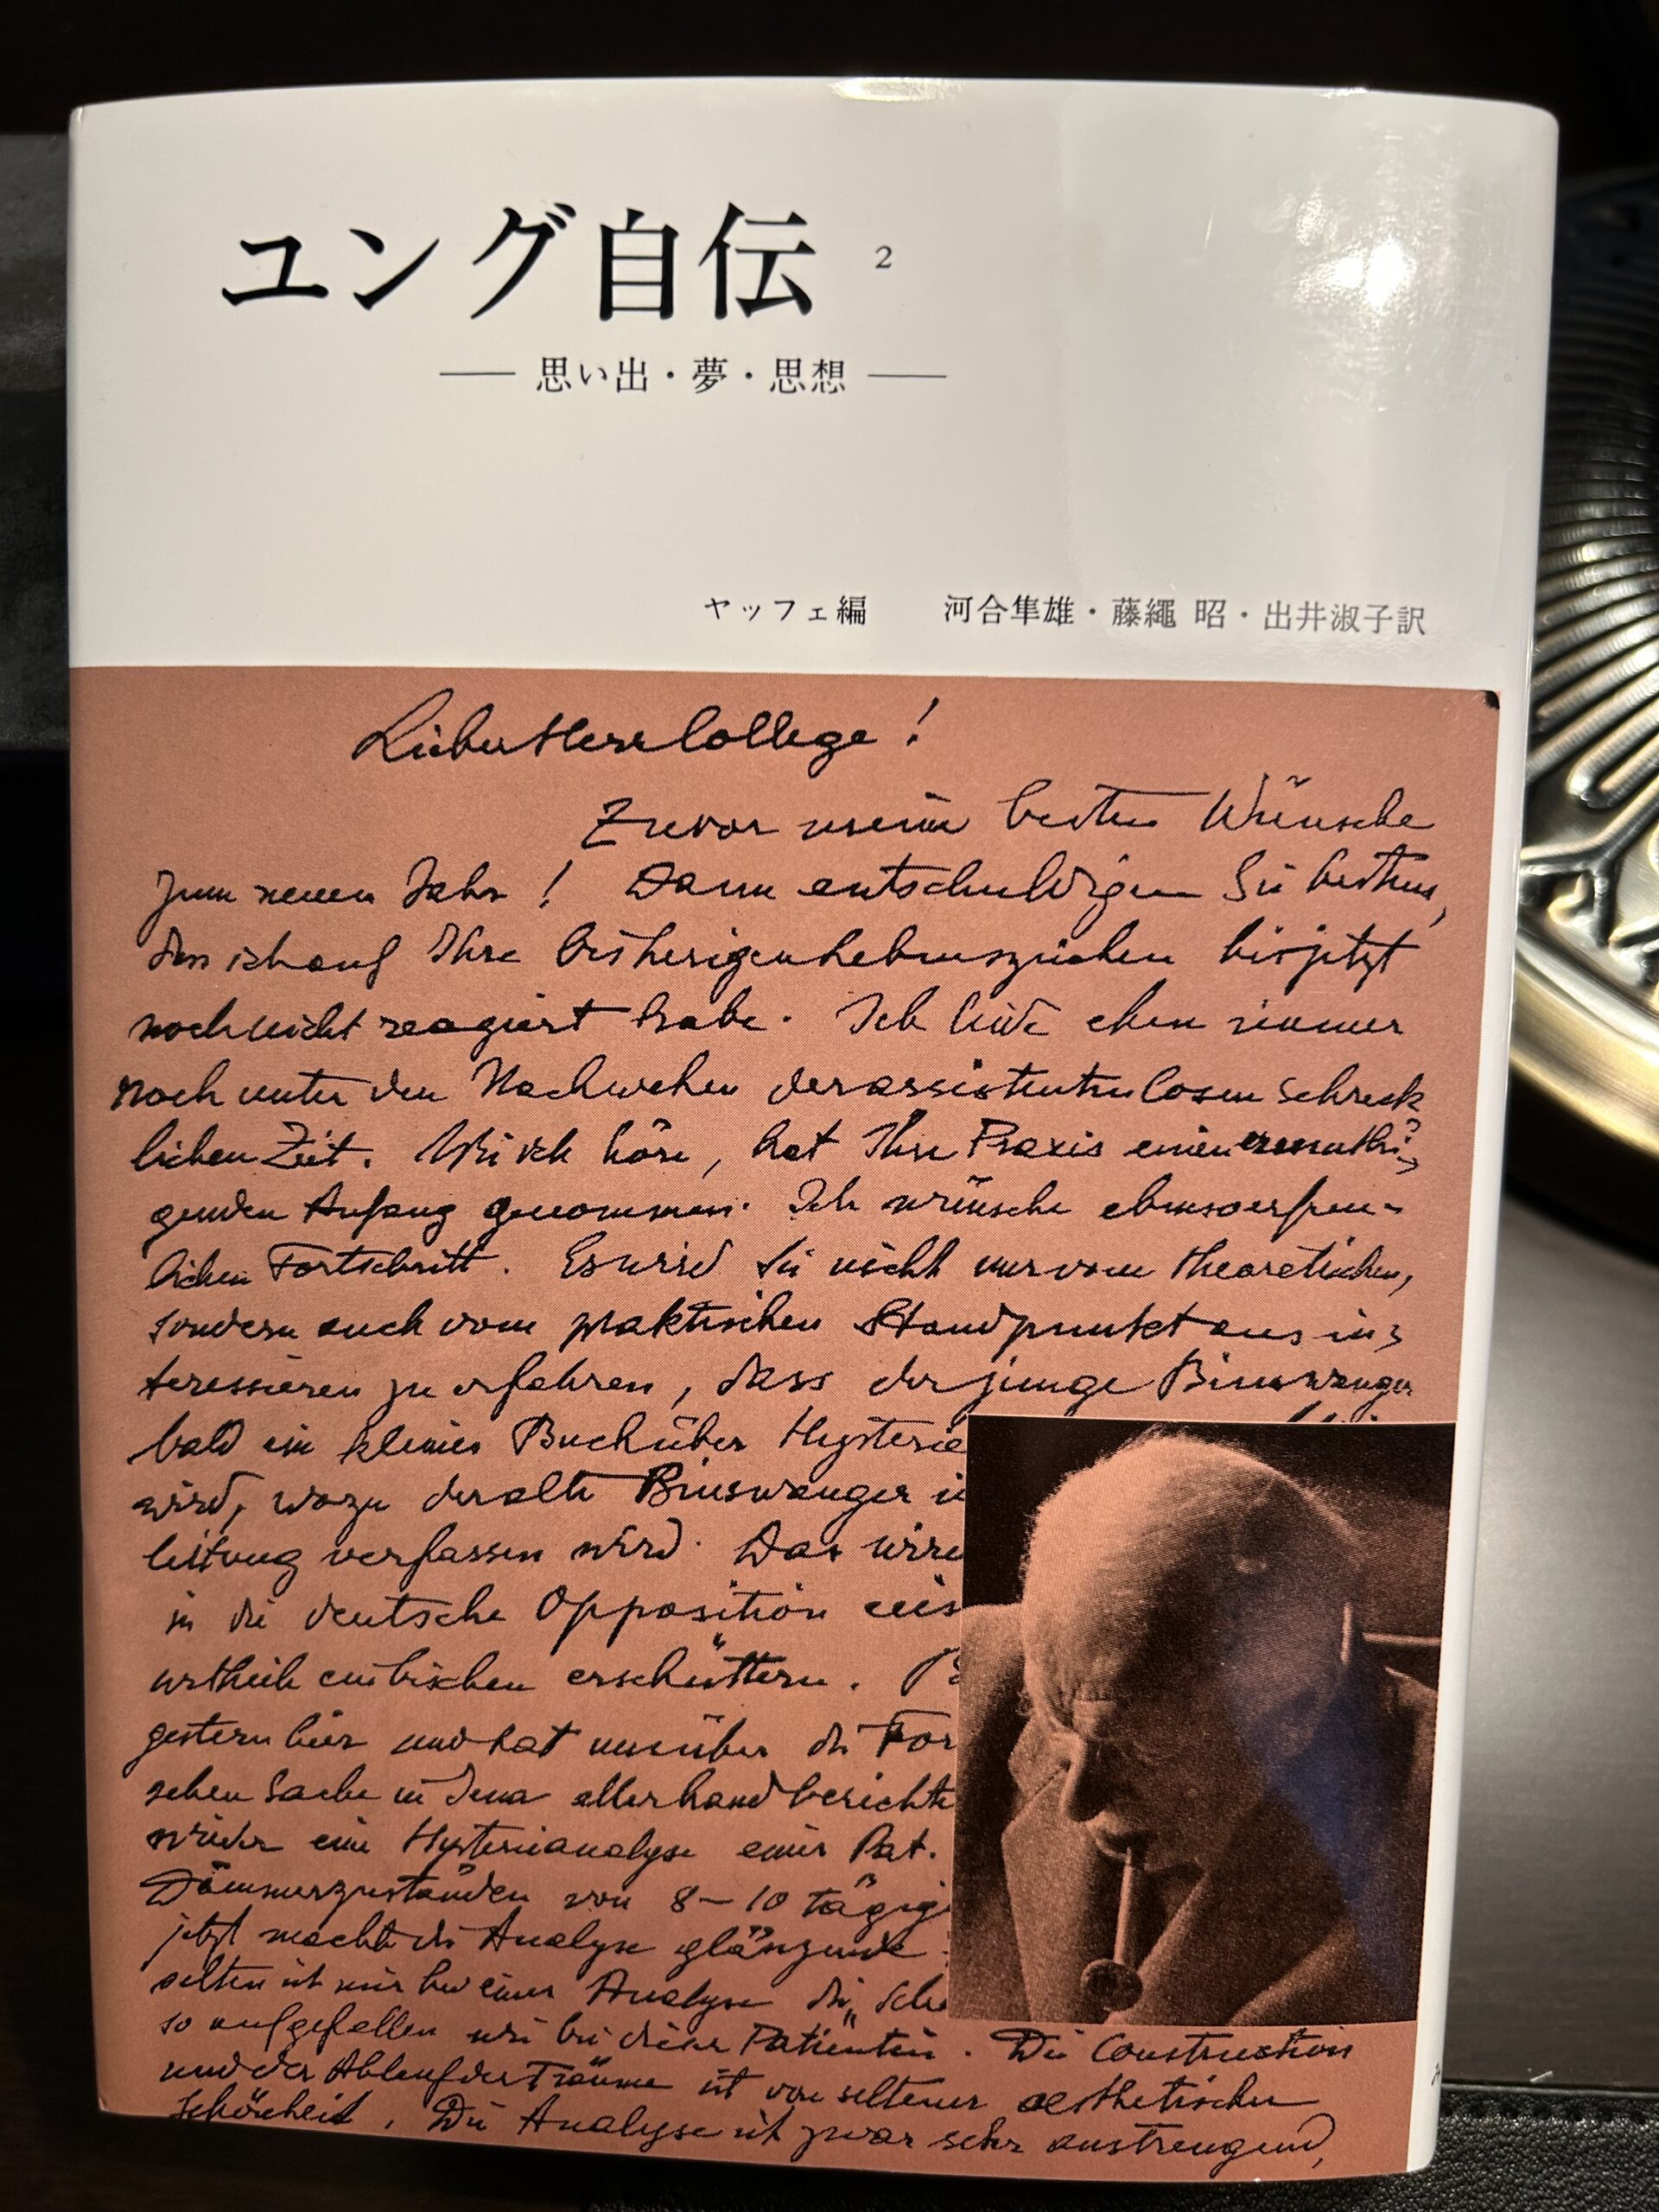 ユング自伝 2
— 思い出・夢・思想 —
ヤッフェ編 河合隼雄・藤繩 昭・出井淑子訳
Lieber Herr College!
Zuvor meine besten Wünsche
zum neuen Jahr! Dann entschuldigen Sie bestens,
dass ich auf Ihre bisherigen Lebenszeichen bis jetzt
noch nicht reagiert habe. Ich leide eben immer
noch unter den Nachwehen der assistentenlosen schreck
lichen Zeit. Wie ich höre, hat Ihre Praxis einen ermuthi-
genden Anfang genommen. Ich wünsche ebenso erfreu-
lichen Fortschritt. Es wird Sie nicht nur vom theoretischen,
sondern auch vom praktischen Standpunkt aus in-
teressieren zu erfahren, dass der junge Binswanger
bald ein kleines Buch über Hysterie
wird, wozu der alte Binswanger
leitung verfassen wird. Das wird
in die deutsche Opposition
urtheile erschüttern.
gestern hier und hat uns über die
schen Sache in Jena allerhand berichte
wieder eine Hysterieanalyse einer Pat.
Dämmerzuständen von 8–10
jetzt macht die Analyse glänzende
selten ist mir bei einer Analyse die
so aufgefallen wie bei dieser Patientin. Die Construction
und der Ablauf der Träume ist von seltener aesthetischer
Schönheit. Die Analyse ist zwar sehr anstrengend,